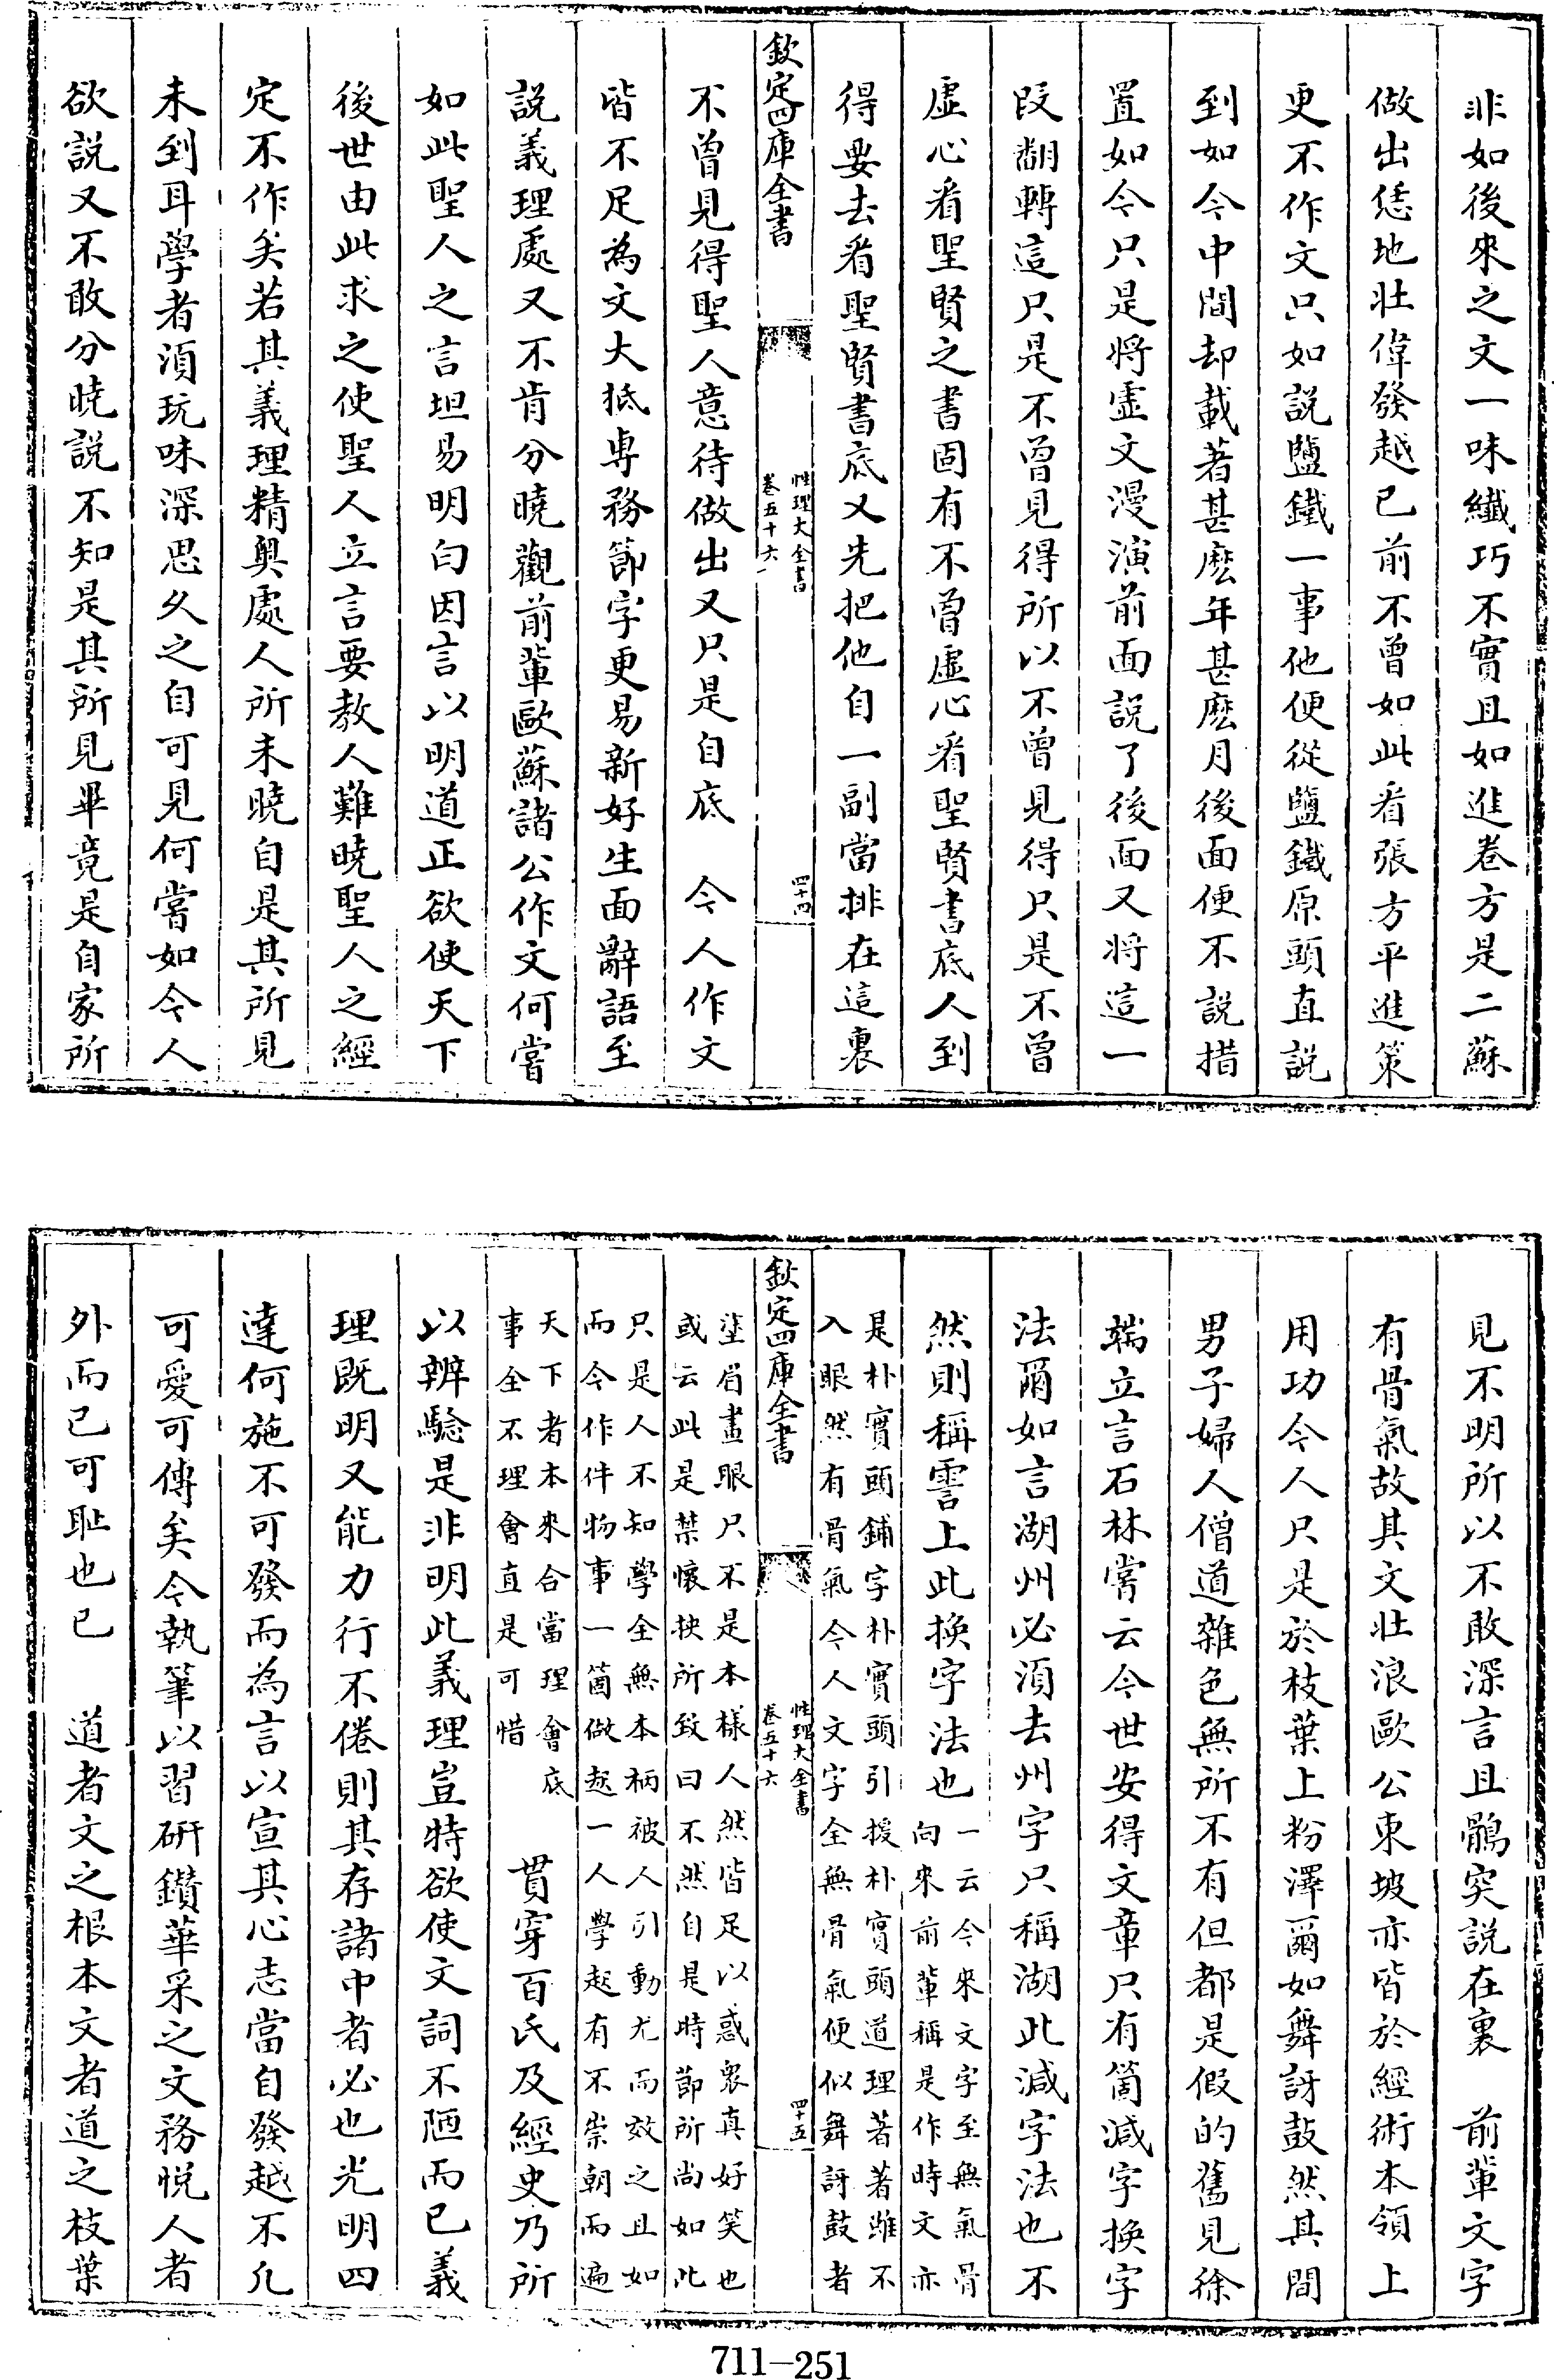 非如後來之文一味纖巧不實且如進卷方是二蘇
做出恁地壯偉發越已前不曾如此看張方平進策
更不作文只如説鹽鐵一事他便從鹽鐵原頭直説
到如今中間却載著甚麽年甚麽月後面便不説措
置如今只是將虛文漫演前面説了後面又將這一
段翻轉這只是不曾見得所以不曾見得只是不曾
虛心看聖賢之書固有不曾虛心看聖賢書底人到
得要去看聖賢書底又先把他自一副當排在這裏
欽定四庫全書
性理大全書
卷五十六
四十四
不曾見得聖人意待做出又只是自底 今人作文
皆不足為文大抵專務節字更易新好生面辭語至
説義理處又不肯分曉觀前輩歐蘇諸公作文何嘗
如此聖人之言坦易明白因言以明道正欲使天下
後世由此求之使聖人立言要教人難曉聖人之經
定不作矣若其義理精奥處人所未曉自是其所見
未到耳學者須玩味深思久之自可見何嘗如今人
欲説又不敢分曉説不知是其所見畢竟是自家所
見不明所以不敢深言且鶻突説在裏 前輩文字
有骨氣故其文壯浪歐公東坡亦皆於經術本領上
用功今人只是於枝葉上粉澤爾如舞訝鼓然其間
男子婦人僧道雜色無所不有但都是假的舊見徐
端立言石林嘗云今世安得文章只有箇減字換字
法爾如言湖州必須去州字只稱湖此減字法也不
然則稱霅上此換字法也一云今來文字至無氣骨
向來前輩稱是作時文亦
是朴實頭鋪字朴實頭引援朴實頭道理著著雖不
入眼然有骨氣今人文字全無骨氣便似舞訝鼓者
欽定四庫全書
性理大全書
卷五十六
四十五
塗眉畫眼只不是本樣人然皆足以惑衆真好笑也
或云此是禁懷挾所致曰不然自是時節所尚如此
只是人不知學全無本柄被人引動尤而效之且如
而今作件物事一箇做起一人學起有不崇朝而遍
天下者本來合當理會底
事全不理會直是可惜 貫穿百氏及經史乃所
以辨驗是非明此義理豈特欲使文詞不陋而已義
理既明又能力行不倦則其存諸中者必也光明四
達何施不可發而為言以宣其心志當自發越不凡
可愛可傳矣今執筆以習研鑽華采之文務悅人者
外而已可恥也已 道者文之根本文者道之枝葉
711-251